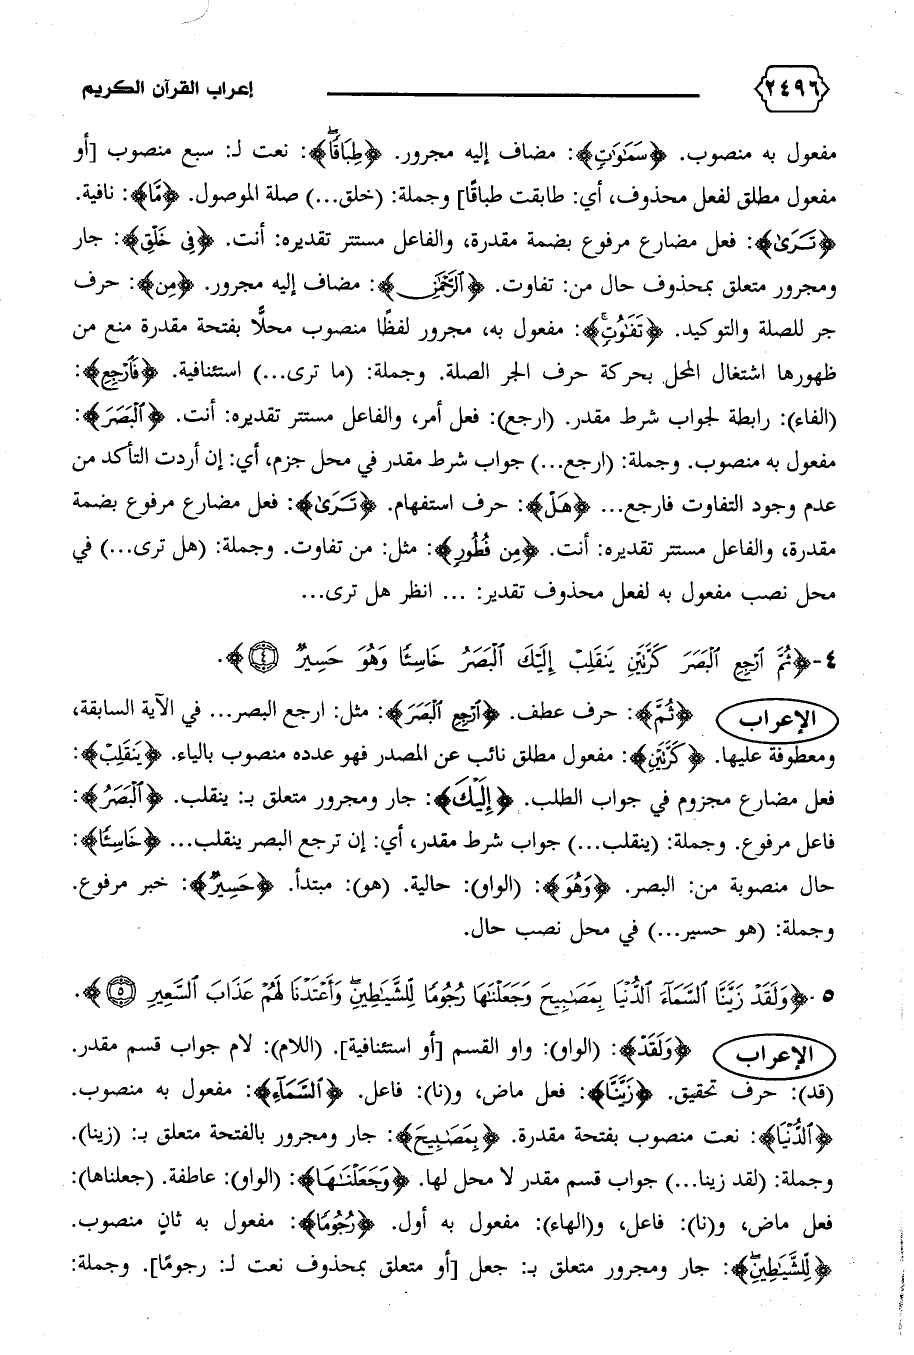 ٢٤٩٦ إعراب القرآن الكريم
مفعول به منصوب. ﴿سَمَٰوَٰتٍ﴾: مضاف إليه مجرور. ﴿طِبَاقًاۖ﴾: نعت لـ: سبع منصوب [أو
مفعول مطلق لفعل محذوف، أي: طابقت طباقًا] وجملة: (خلق...) صلة الموصول. ﴿مَّا﴾: نافية.
﴿تَرَىٰ﴾: فعل مضارع مرفوع بضمة مقدرة، والفاعل مستتر تقديره: أنت. ﴿فِى خَلْقِ﴾: جار
ومجرور متعلق بمحذوف حال من: تفاوت. ﴿ٱلرَّحْمَٰنِ﴾: مضاف إليه مجرور. ﴿مِن﴾: حرف
جر للصلة والتوكيد. ﴿تَفَٰوُتٍۖ﴾: مفعول به، مجرور لفظًا منصوب محلًّا بفتحة مقدرة منع من
ظهورها اشتغال المحل بحركة حرف الجر الصلة. وجملة: (ما ترى...) استئنافية. ﴿فَٱرْجِعِ﴾:
(الفاء): رابطة لجواب شرط مقدر. (ارجع): فعل أمر، والفاعل مستتر تقديره: أنت. ﴿ٱلْبَصَرَ﴾:
مفعول به منصوب. وجملة: (ارجع...) جواب شرط مقدر في محل جزم، أي: إن أردت التأكد من
عدم وجود التفاوت فارجع... ﴿هَلْ﴾: حرف استفهام. ﴿تَرَىٰ﴾: فعل مضارع مرفوع بضمة
مقدرة، والفاعل مستتر تقديره: أنت. ﴿مِن فُطُورٍ﴾: مثل: من تفاوت. وجملة: (هل ترى...) في
محل نصب مفعول به لفعل محذوف تقدير: ... انظر هل ترى...
٤-﴿ثُمَّ ٱرْجِعِ ٱلْبَصَرَ كَرَّتَيْنِ يَنقَلِبْ إِلَيْكَ ٱلْبَصَرُ خَاسِئًا وَهُوَ حَسِيرٌ ٤﴾.
الإعراب ﴿ثُمَّ﴾: حرف عطف. ﴿ٱرْجِعِ ٱلْبَصَرَ﴾: مثل: ارجع البصر... في الآية السابقة،
ومعطوفة عليها. ﴿كَرَّتَيْنِ﴾: مفعول مطلق نائب عن المصدر فهو عدده منصوب بالياء. ﴿يَنقَلِبْ﴾:
فعل مضارع مجزوم في جواب الطلب. ﴿إِلَيْكَ﴾: جار ومجرور متعلق بـ: ينقلب. ﴿ٱلْبَصَرُ﴾:
فاعل مرفوع. وجملة: (ينقلب...) جواب شرط مقدر، أي: إن ترجع البصر ينقلب... ﴿خَاسِئًا﴾:
حال منصوبة من: البصر. ﴿وَهُوَ﴾: (الواو): حالية. (هو): مبتدأ. ﴿حَسِيرٌ﴾: خبر مرفوع.
وجملة: (هو حسير...) في محل نصب حال.
٥-﴿وَلَقَدْ زَيَّنَّا ٱلسَّمَآءَ ٱلدُّنْيَا بِمَصَٰبِيحَ وَجَعَلْنَٰهَا رُجُومًا لِّلشَّيَٰطِينِۖ وَأَعْتَدْنَا لَهُمْ عَذَابَ ٱلسَّعِيرِ ٥﴾.
الإعراب ﴿وَلَقَدْ﴾: (الواو): واو القسم [أو استئنافية]. (اللام): لام جواب قسم مقدر.
(قد): حرف تحقيق. ﴿زَيَّنَّا﴾: فعل ماض، و(نا): فاعل. ﴿ٱلسَّمَآءَ﴾: مفعول به منصوب.
﴿ٱلدُّنْيَا﴾: نعت منصوب بفتحة مقدرة. ﴿بِمَصَٰبِيحَ﴾: جار ومجرور بالفتحة متعلق بـ: (زينا).
وجملة: (لقد زينا...) جواب قسم مقدر لا محل لها. ﴿وَجَعَلْنَٰهَا﴾: (الواو): عاطفة. (جعلناها):
فعل ماض، و(نا): فاعل، و(الهاء): مفعول به أول. ﴿رُجُومًا﴾: مفعول به ثانٍ منصوب.
﴿لِّلشَّيَٰطِينِۖ﴾: جار ومجرور متعلق بـ: جعل [أو متعلق بمحذوف نعت لـ: رجومًا]. وجملة: